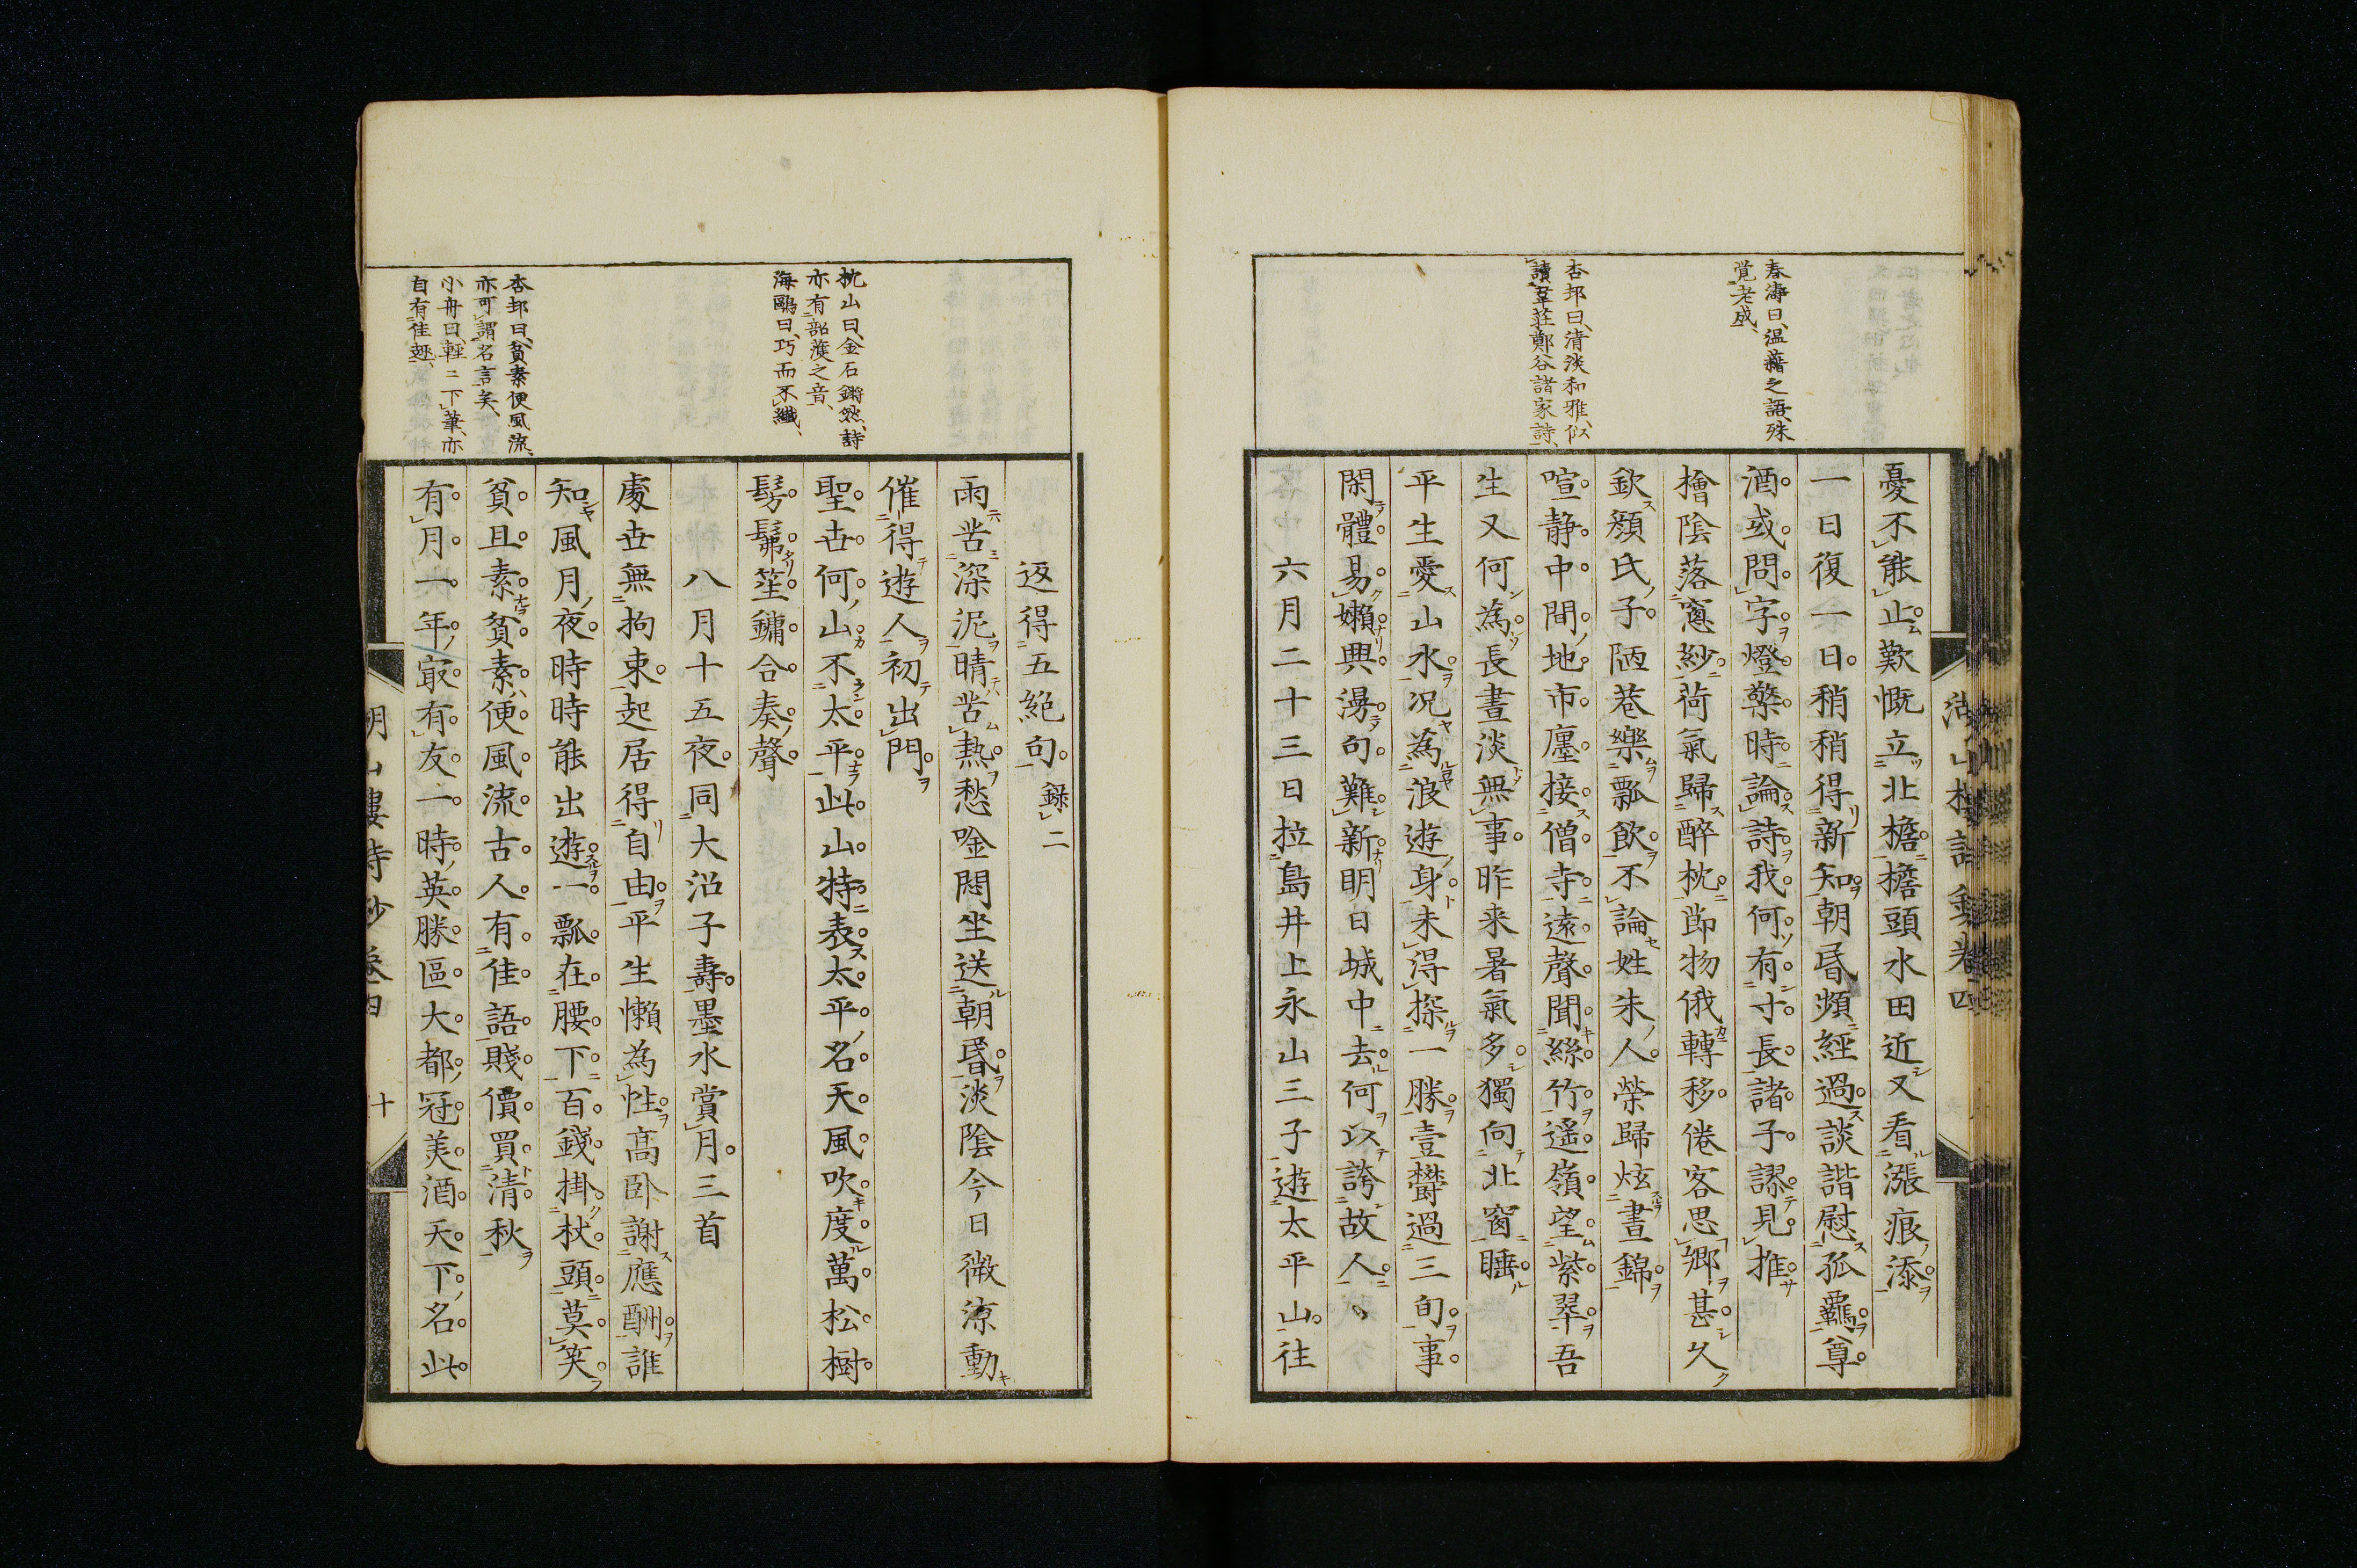 春濤曰、温藉之語、殊
覚老成、
杏邨曰、清淡和雅、似
讀韋荘鄭谷諸家詩、
憂不能止歎慨立北檐檐頭水田近又看漲痕添
一日復一日稍稍得新知朝昏頻經過談諧慰孤羈尊
酒或問字燈檠時論詩我何有寸長諸子謬見推
檜陰落窓紗荷氣歸醉枕節物俄轉移倦客思郷甚久
欽顔氏子陋巷樂瓢飲不論姓朱人榮歸炫晝錦
喧静中間地市廛接僧寺遠聲聞絲竹遥嶺望紫翠吾
生又何為長晝淡無事昨来暑氣多獨向北窗睡
平生愛山水況為浪遊身未得探一勝壹欝過三旬事
閑體易嬾興湯句難新明日城中去何以誇故人
六月二十三日拉島井上永山三子遊太平山往
枕山曰、金石鏘然、詩
亦有韶濩之音、
海鷗曰、巧而不纖、
杏邨曰、貧素便風流、
亦可謂名言矣、
小舟曰、輕二下筆、亦
自有佳趣、
返得五絶句 録二
雨苦深泥晴苦熱愁唫悶坐送朝昏淡陰今日微凉動
催得遊人初出門
聖世何山不太平此山特表太平名天風吹度萬松樹
髣髴笙鏞合奏聲
八月十五夜同大沼子壽墨水賞月三首
處世無拘束起居得自由平生懶為性高臥謝應酬誰
知風月夜時時能出遊一瓢在腰下百錢掛杖頭莫笑
貧且素貧素便風流古人有佳語賤價買清秋
有月一年㝡有友一時英勝區大都冠美酒天下名此
樓詩鈔卷四
十